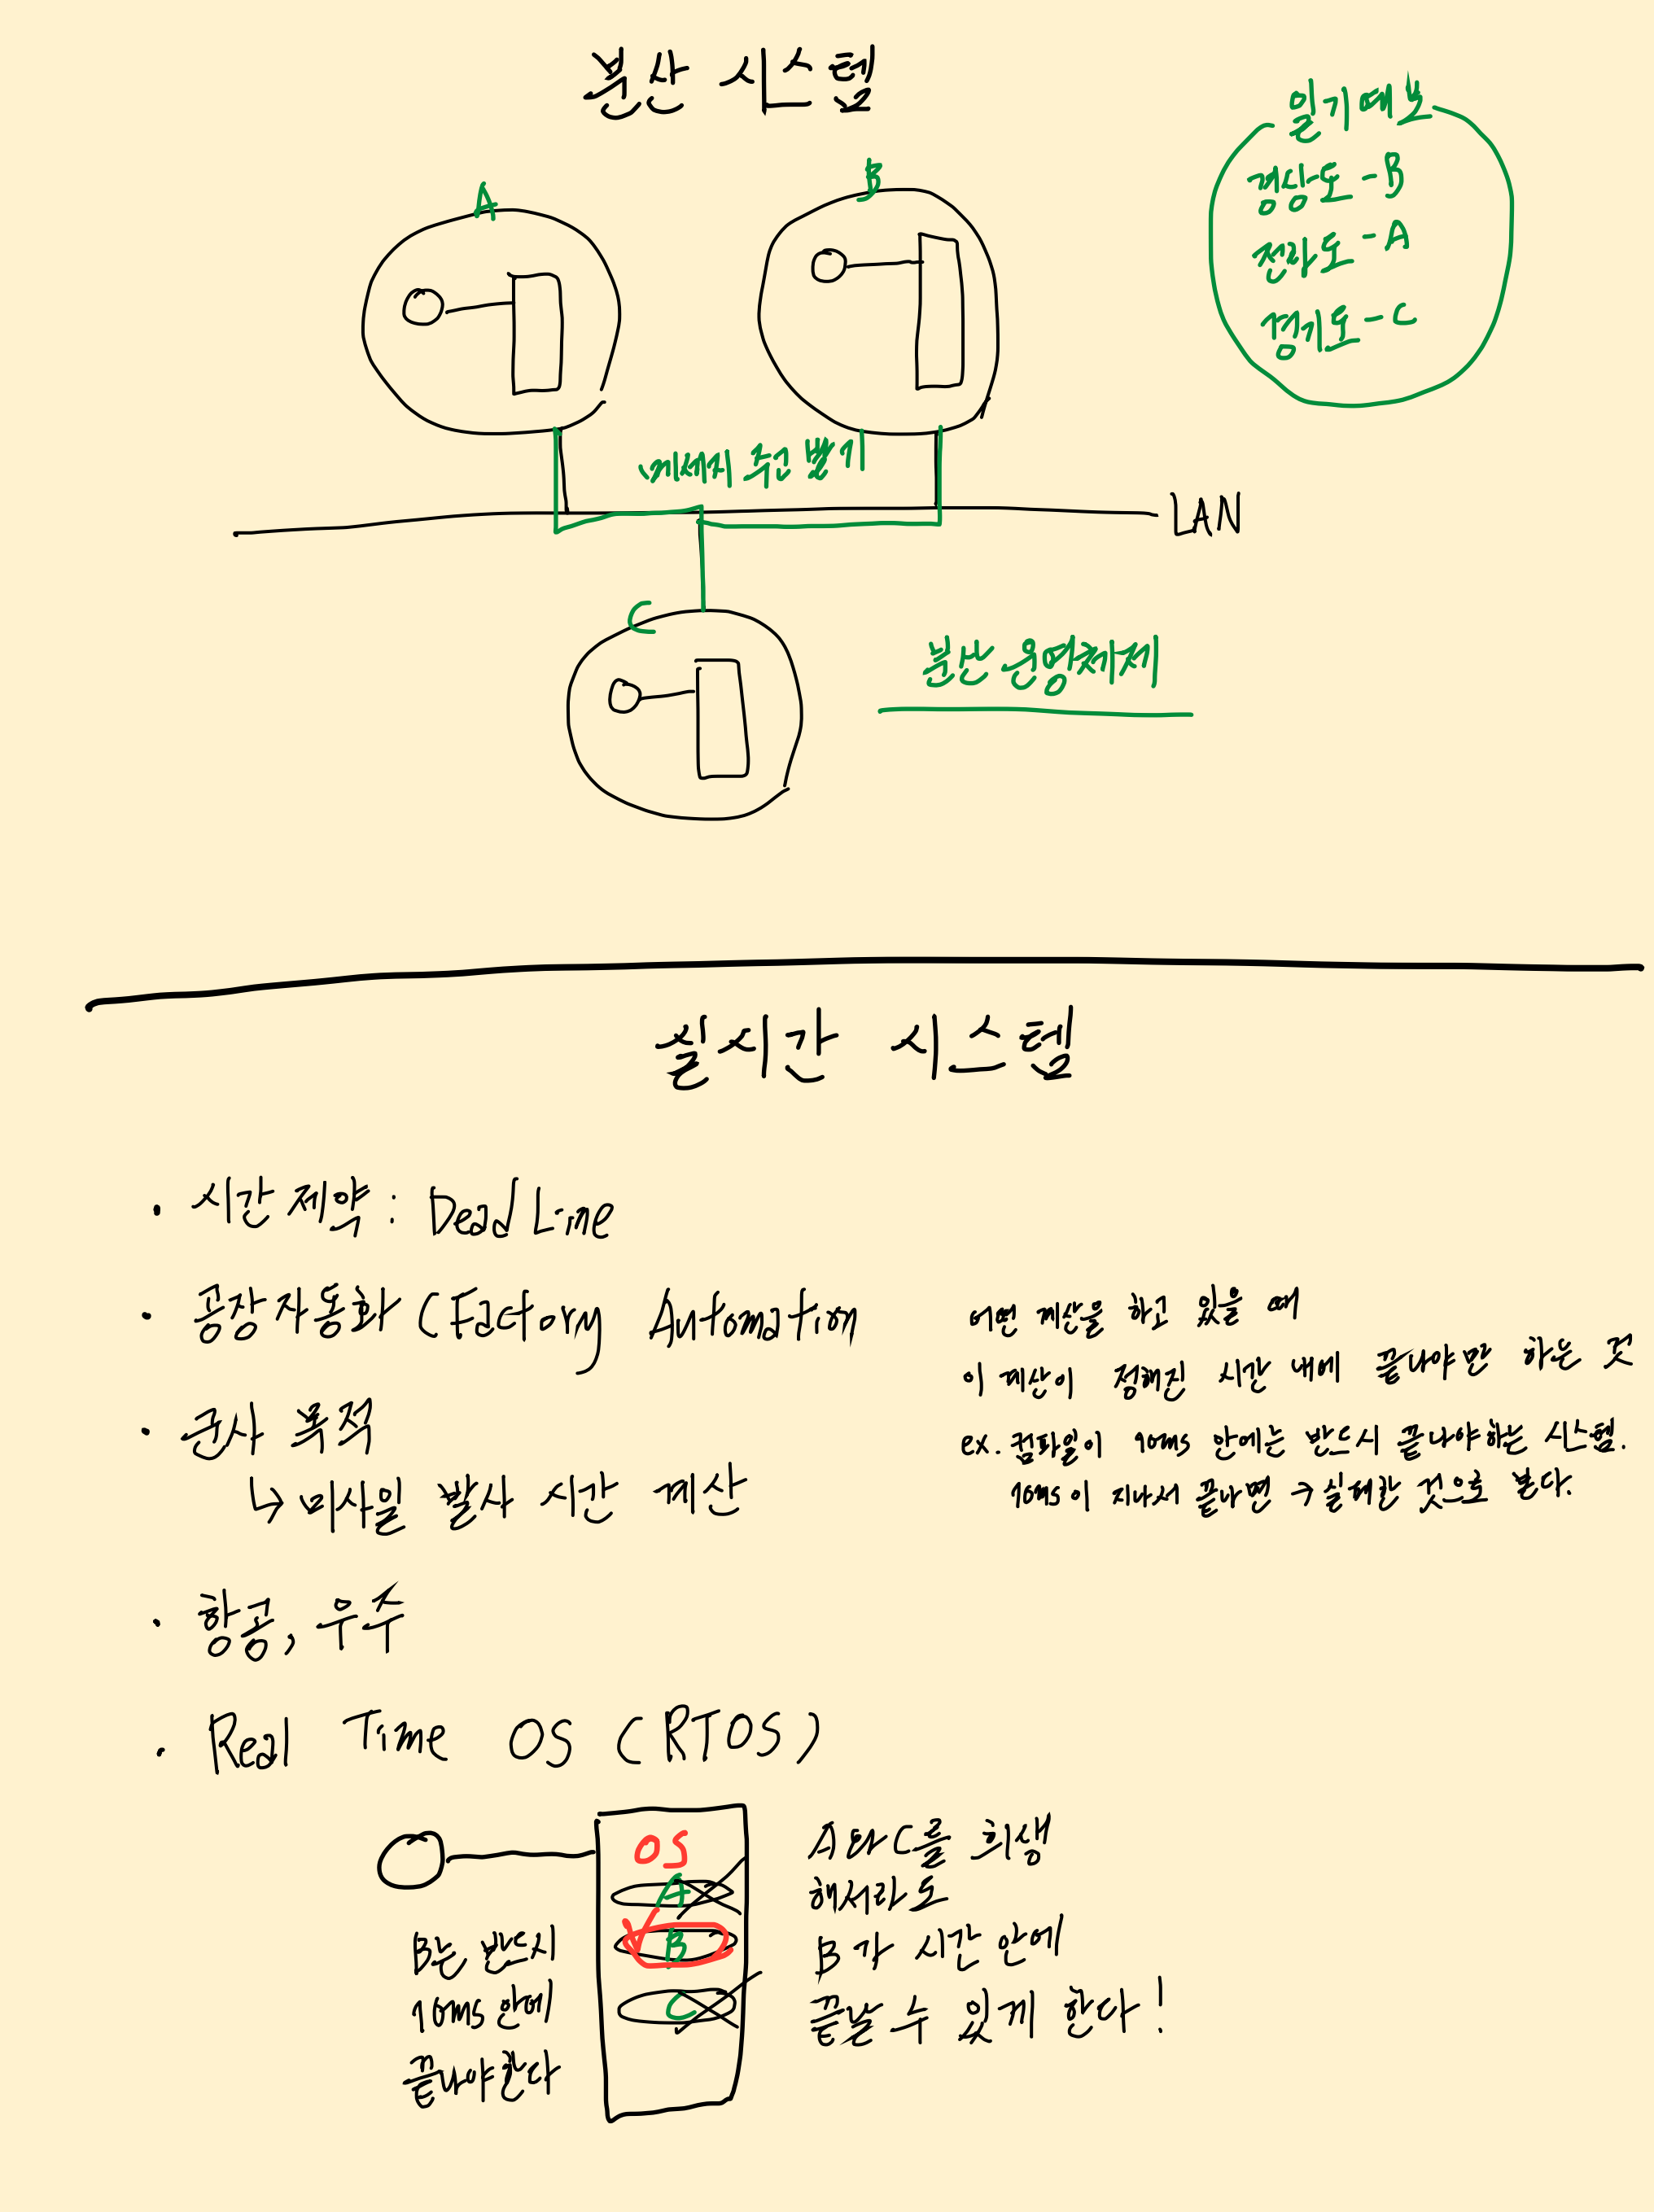 분산 시스템
A
B
일기예보
경상도 - B
전라도 - A
경기도 - C
메세지 주고 받기
LAN
C
분산 운영체제
실시간 시스템
· 시간 제약 : Dead Line
· 공장자동화 (Factory Automation
어떤 계산을 하고 있을 때
이 계산이 정해진 시간 내에 끝나야만 하는 것
ex. 컴파일이 10ms 안에는 반드시 끝나야하는 시스템.
10ms이 지나서 끝나면 → 실패한 것으로 본다.
· 군사 목적
↳ 미사일 발사 시간 계산
· 항공, 우주
· Real Time OS (RTOS)
OS
A
B
C
B는 반드시
10ms 안에
끝나야한다
A와 C를 희생
해서라도
B가 시간 안에
끝날 수 있게 한다!